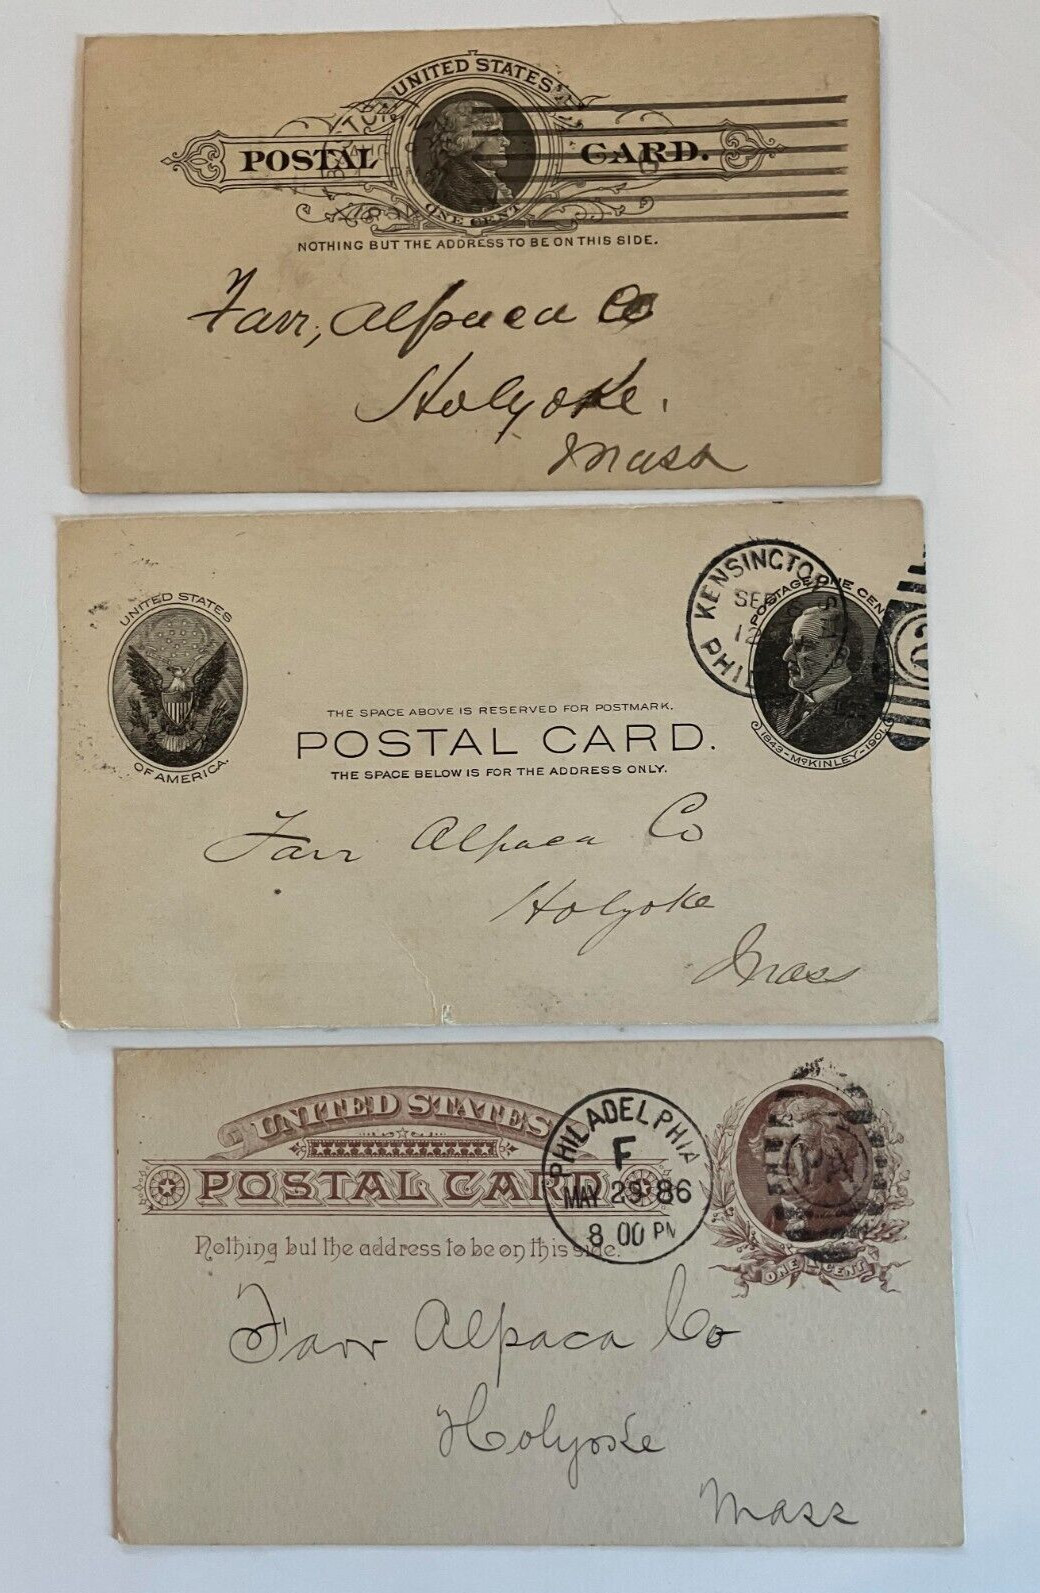 UNITED STATES
POSTAL CARD.
ONE CENT
NOTHING BUT THE ADDRESS TO BE ON THIS SIDE.
Farr, Alpaca Co
Holyoke.
Mass
UNITED STATES
OF AMERICA.
KENSINGTON
SEP
12
PHIL
POSTAGE ONE CENT
1843-McKINLEY-1901
THE SPACE ABOVE IS RESERVED FOR POSTMARK.
POSTAL CARD.
THE SPACE BELOW IS FOR THE ADDRESS ONLY.
Farr Alpaca Co
Holyoke
Mass
UNITED STATES
POSTAL CARD
Nothing but the address to be on this side.
PHILADELPHIA
F
MAY 29 86
8 00 PM
PA
ONE CENT
Farr Alpaca Co
Holyoke
Mass